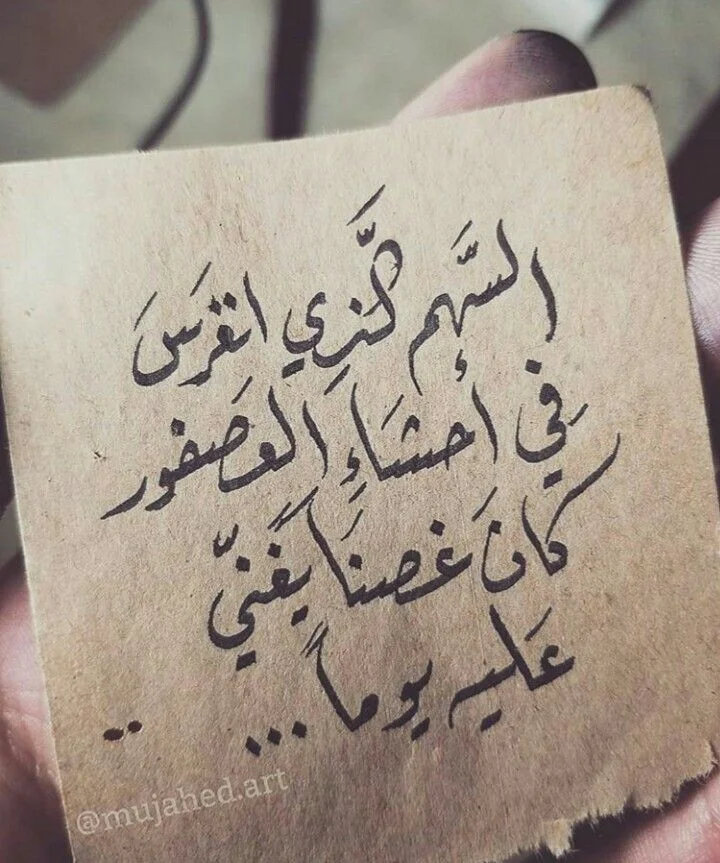 السَّهم الَّذِي انغرَسَ
فِي أحشَاءِ العصَفور
كانَ غصنَاً يغَنّي
عَليه يوماً...
..
@mujahed.art